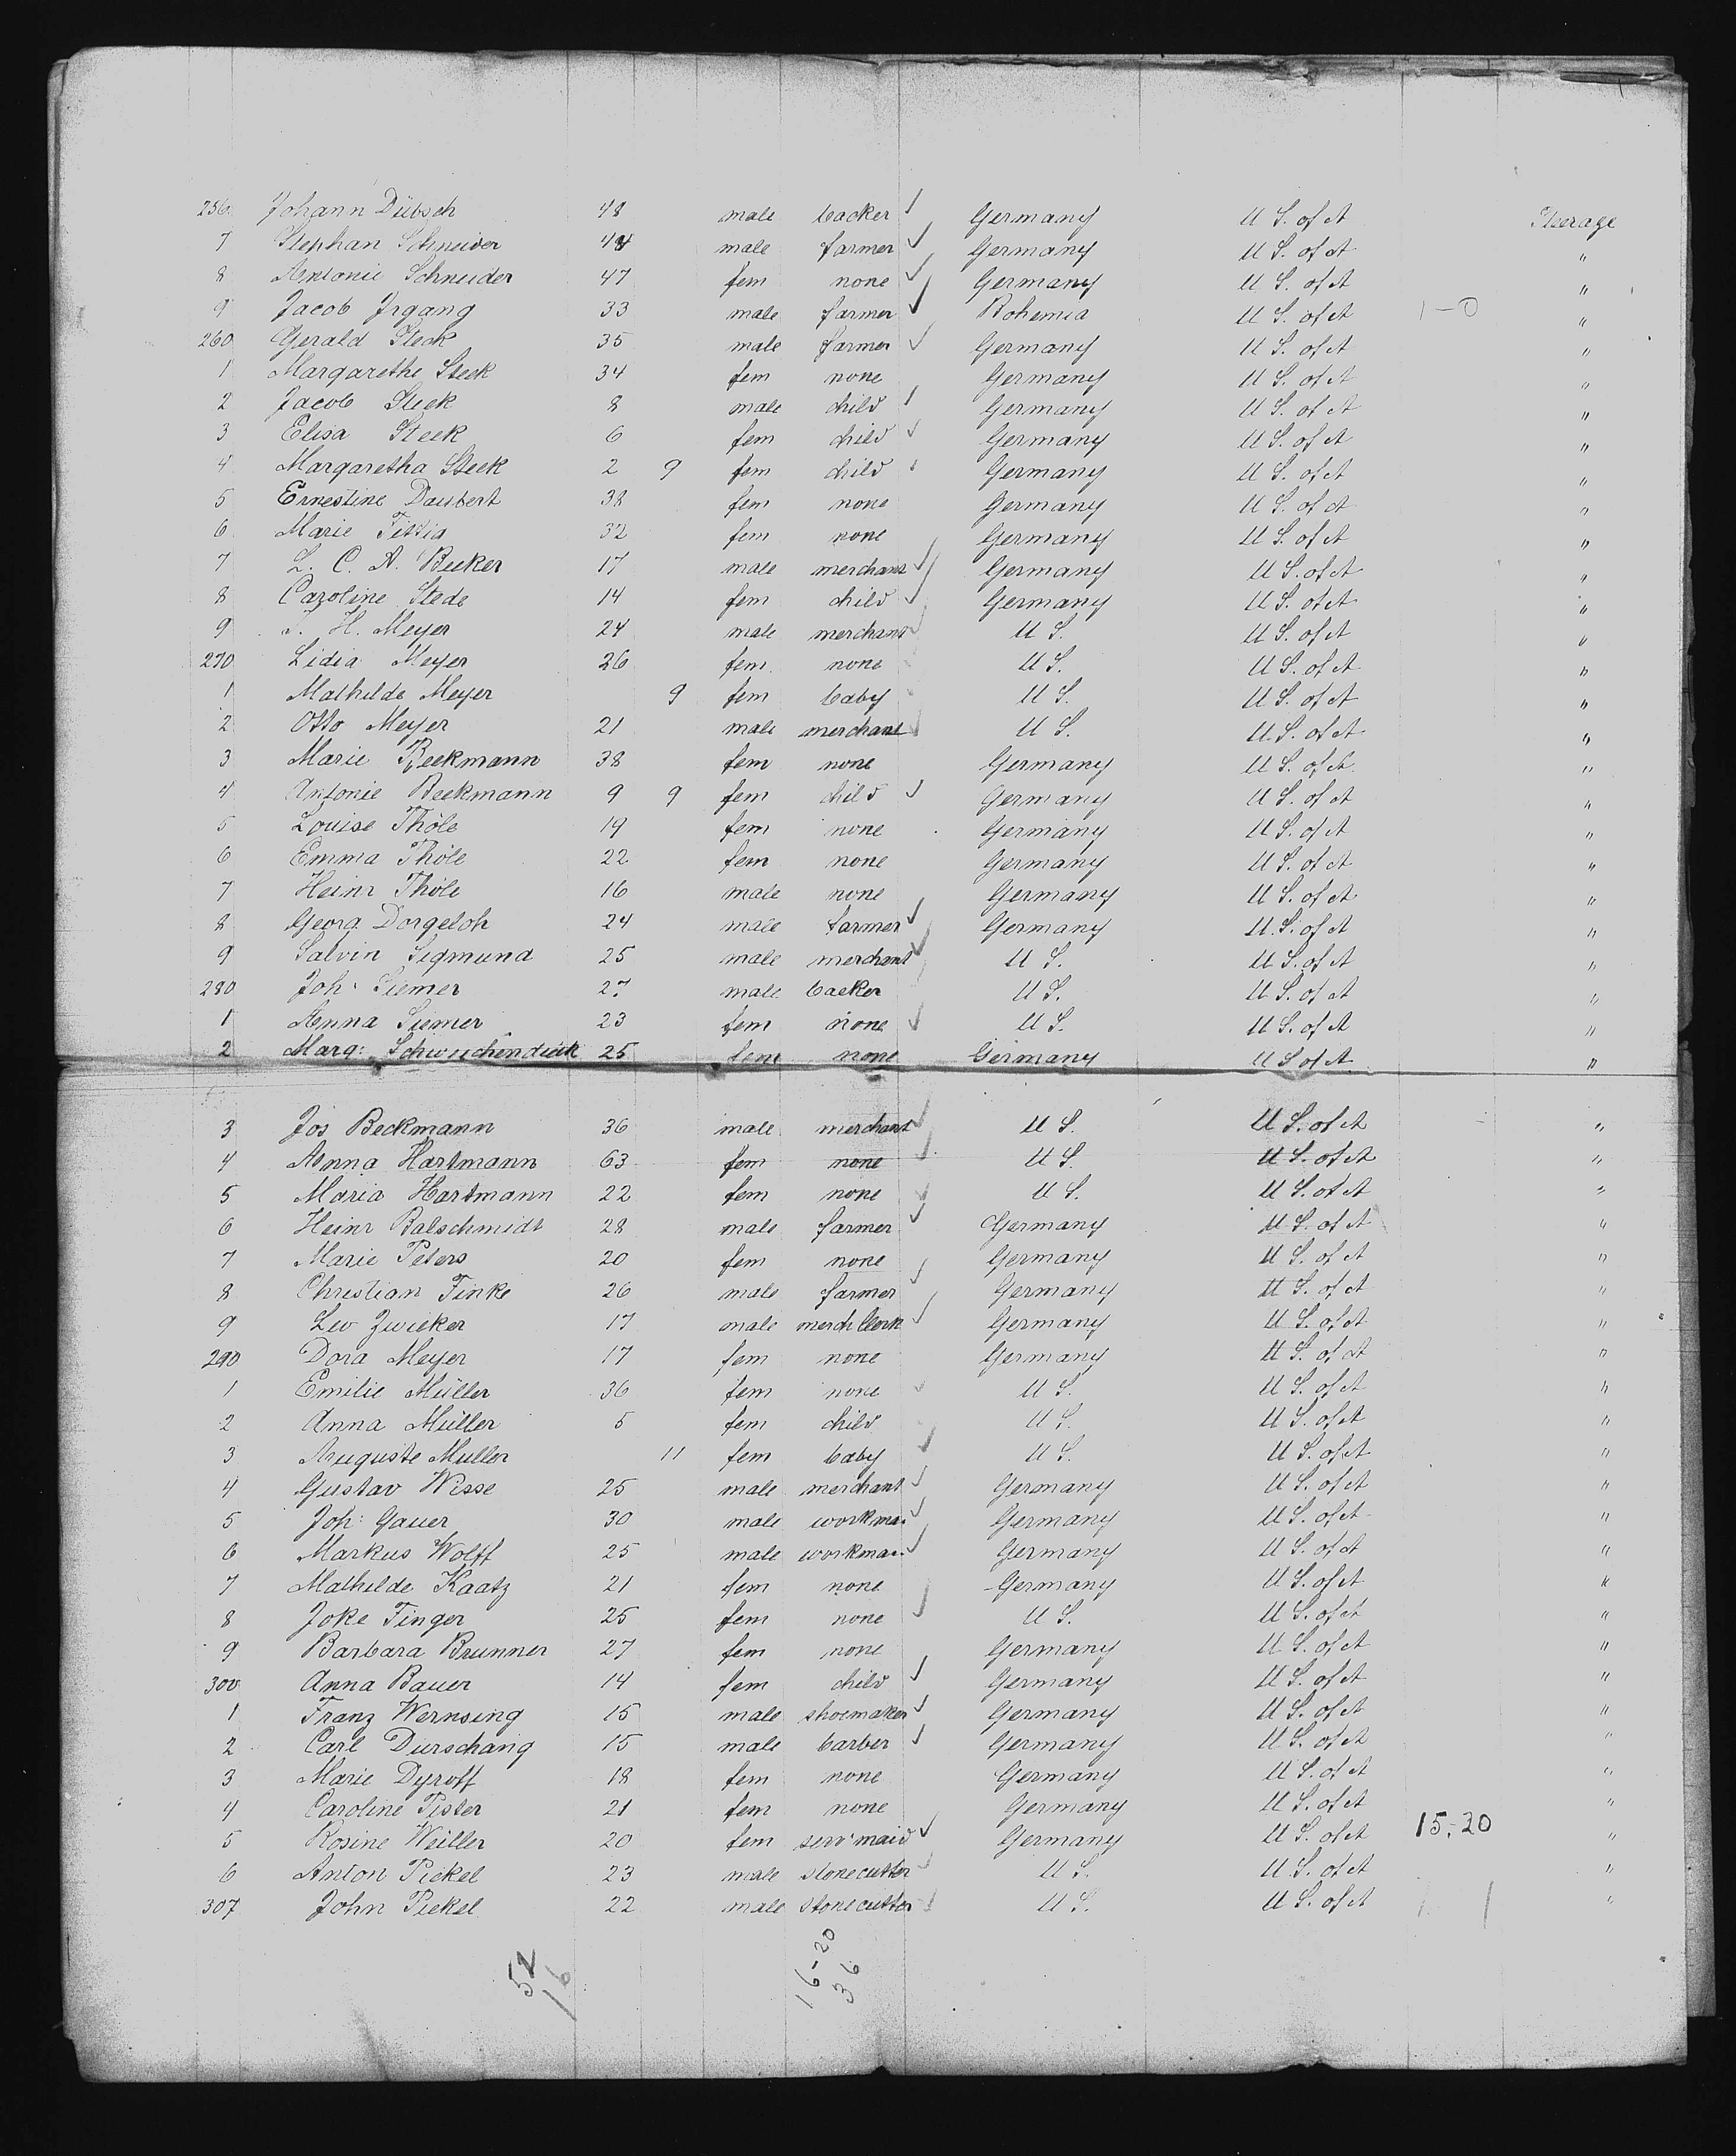 256 Johann Dübsch 48 male backer Germany U S. of A Steerage
7 Stephan Schneider 44 male farmer Germany U S. of A "
8 Antonie Schneider 47 fem none Germany U S. of A "
9 Jacob Irgang 33 male farmer Bohemia U S. of A 1-0 "
260 Gerald Steck 35 male farmer Germany U S. of A "
1 Margarethe Steck 34 fem none Germany U S. of A "
2 Jacob Steck 8 male child Germany U S. of A "
3 Elisa Steck 6 fem child Germany U S. of A "
4 Margaretha Steck 2 9 fem child Germany U S. of A "
5 Ernestine Daubert 38 fem none Germany U S. of A "
6 Marie 32 fem none Germany U S. of A "
7 L. C. A. Beeker 17 male merchant Germany U S. of A "
8 Caroline Stede 14 fem child Germany U S. of A "
9 H. Meyer 24 male merchant U S. U S. of A "
270 Lidia Meyer 26 fem none U S. U S. of A "
1 Mathilde Meyer 9 fem baby U S. U S. of A "
2 Otto Meyer 21 male merchant U S. U S. of A "
3 Marie Beekmann 38 fem none Germany U S. of A "
4 Antonie Beekmann 9 9 fem child Germany U S. of A "
5 Louise Thöle 19 fem none Germany U S. of A "
6 Emma Thöle 22 fem none Germany U S. of A "
7 Heinr Thöle 16 male none Germany U S. of A "
8 Georg Dorgeloh 24 male farmer Germany U. S. of A "
9 Salvin Sigmund 25 male merchant U S. U S. of A "
280 Joh: Siemer 27 male backer U S. U S. of A "
1 Anna Siemer 23 fem none U S. U S. of A "
2 Marg: Schwiechendiek 25 fem none Germany U S of A "
3 Jos Beckmann 36 male merchant U S. U S. of A "
4 Anna Hartmann 63 fem none U S. U S. of A "
5 Maria Hartmann 22 fem none U S. U S. of A "
6 Heinr Balschmidt 28 male farmer Germany U S. of A "
7 Marie Peters 20 fem none Germany U S. of A "
8 Christian Finke 26 male farmer Germany U S. of A "
9 Leo Zwicker 17 male merch Clerk Germany U S. of A "
290 Dora Meyer 17 fem none Germany U S. of A "
1 Emilie Müller 36 fem none U S. U S. of A "
2 Anna Müller 5 fem child U S. U S. of A "
3 Auguste Muller 11 fem baby U S. U S. of A "
4 Gustav Wisse 25 male merchant Germany U S. of A "
5 Joh: Gauer 30 male workman Germany U S. of A "
6 Markus Wolff 25 male workman Germany U S. of A "
7 Mathilde Kaatz 21 fem none Germany U S. of A "
8 Joke Finger 25 fem none U S. U S. of A "
9 Barbara Brunner 27 fem none Germany U S. of A "
300 Anna Bauer 14 fem child Germany U S. of A "
1 Franz Wernsing 15 male shoemaker Germany U S. of A "
2 Carl Durschang 15 male barber Germany U S. of A "
3 Marie Dyroff 18 fem none Germany U S. of A "
4 Caroline Pister 21 fem none Germany U S. of A "
5 Rosine Weiller 20 fem serv maid Germany U S. of A 15-20 "
6 Anton Pickel 23 male stonecutter U S. U S. of A "
307 John Pickel 22 male stonecutter U S. U S. of A "
52
16
16-20
36